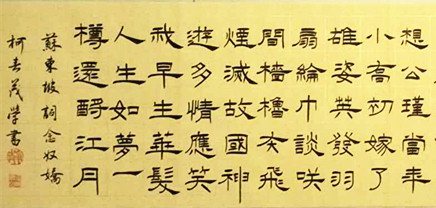 想公瑾當年
小喬初嫁了
雄姿英發羽
扇綸巾談咲
間檣櫓灰飛
煙滅故國神
遊多情應笑
我早生華髮
人生如夢一
樽還酹江月
蘇東坡詞念奴嬌
柯茂書